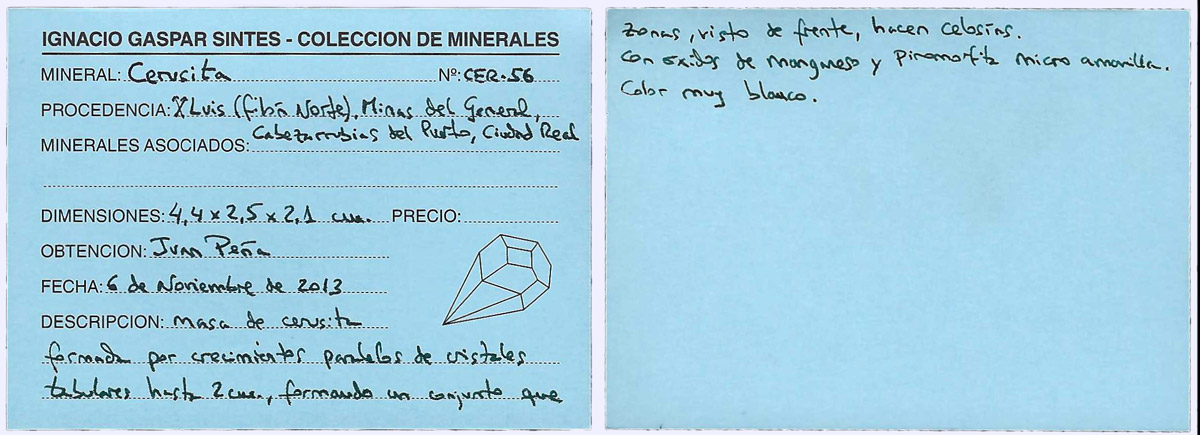 IGNACIO GASPAR SINTES - COLECCION DE MINERALES
MINERAL: Cerusita Nº: CER-56
PROCEDENCIA: X Luis (filón Norte), Minas del General,
Cabezarrubias del Puerto, Ciudad Real
MINERALES ASOCIADOS:
DIMENSIONES: 4,4 x 2,5 x 2,1 cm. PRECIO:
OBTENCION: Juan Peña
FECHA: 6 de Noviembre de 2013
DESCRIPCION: masa de cerusita
formada por crecimientos paralelos de cristales
tabulares hasta 2 cm., formando un conjunto que
zonas, visto de frente, hacen celosías.
Con óxidos de manganeso y Piromorfita micro amarilla.
Color muy blanco.